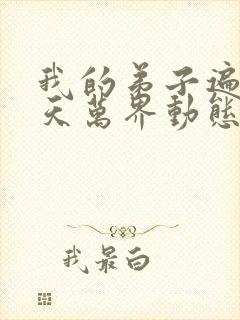 我的弟子遍
天萬界動態
我最白